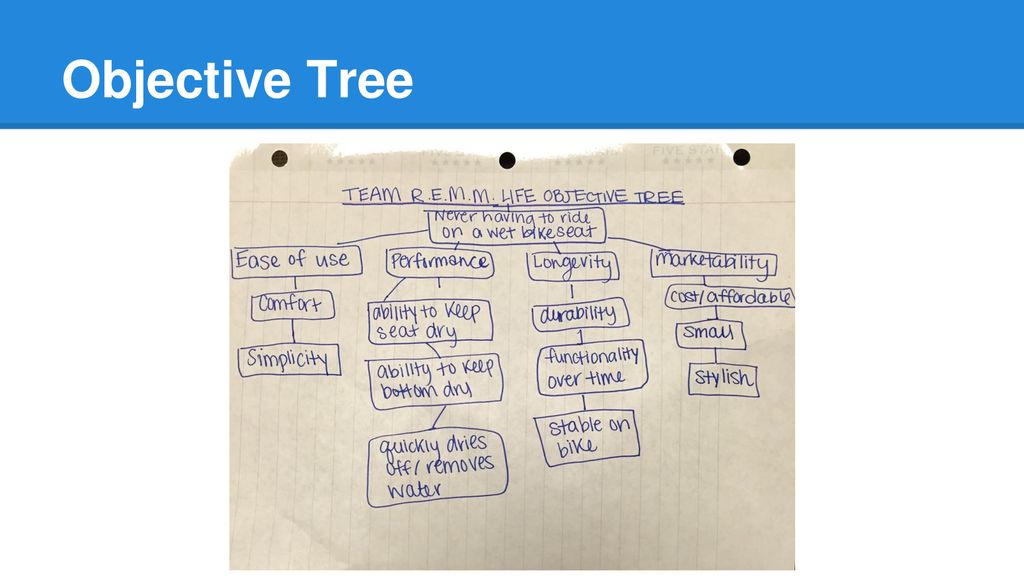 Objective Tree
FIVE STAR
TEAM R.E.M.M. LIFE OBJECTIVE TREE
Never having to ride
on a wet bike seat
Ease of use
Comfort
Simplicity
Performance
ability to keep
seat dry
ability to keep
bottom dry
quickly dries
off/removes
water
Longevity
durability
functionality
over time
stable on
bike
marketability
cost/affordable
small
stylish